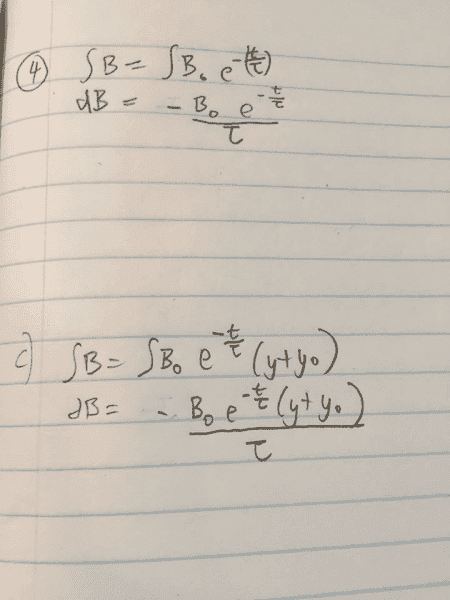 ④ ∫B = ∫B₀ e^-(t/τ)
dB = - B₀ e^-t/τ / τ
c) ∫B = ∫B₀ e^-t/τ (y+y₀)
dB = - B₀ e^-t/τ (y+y₀) / τ